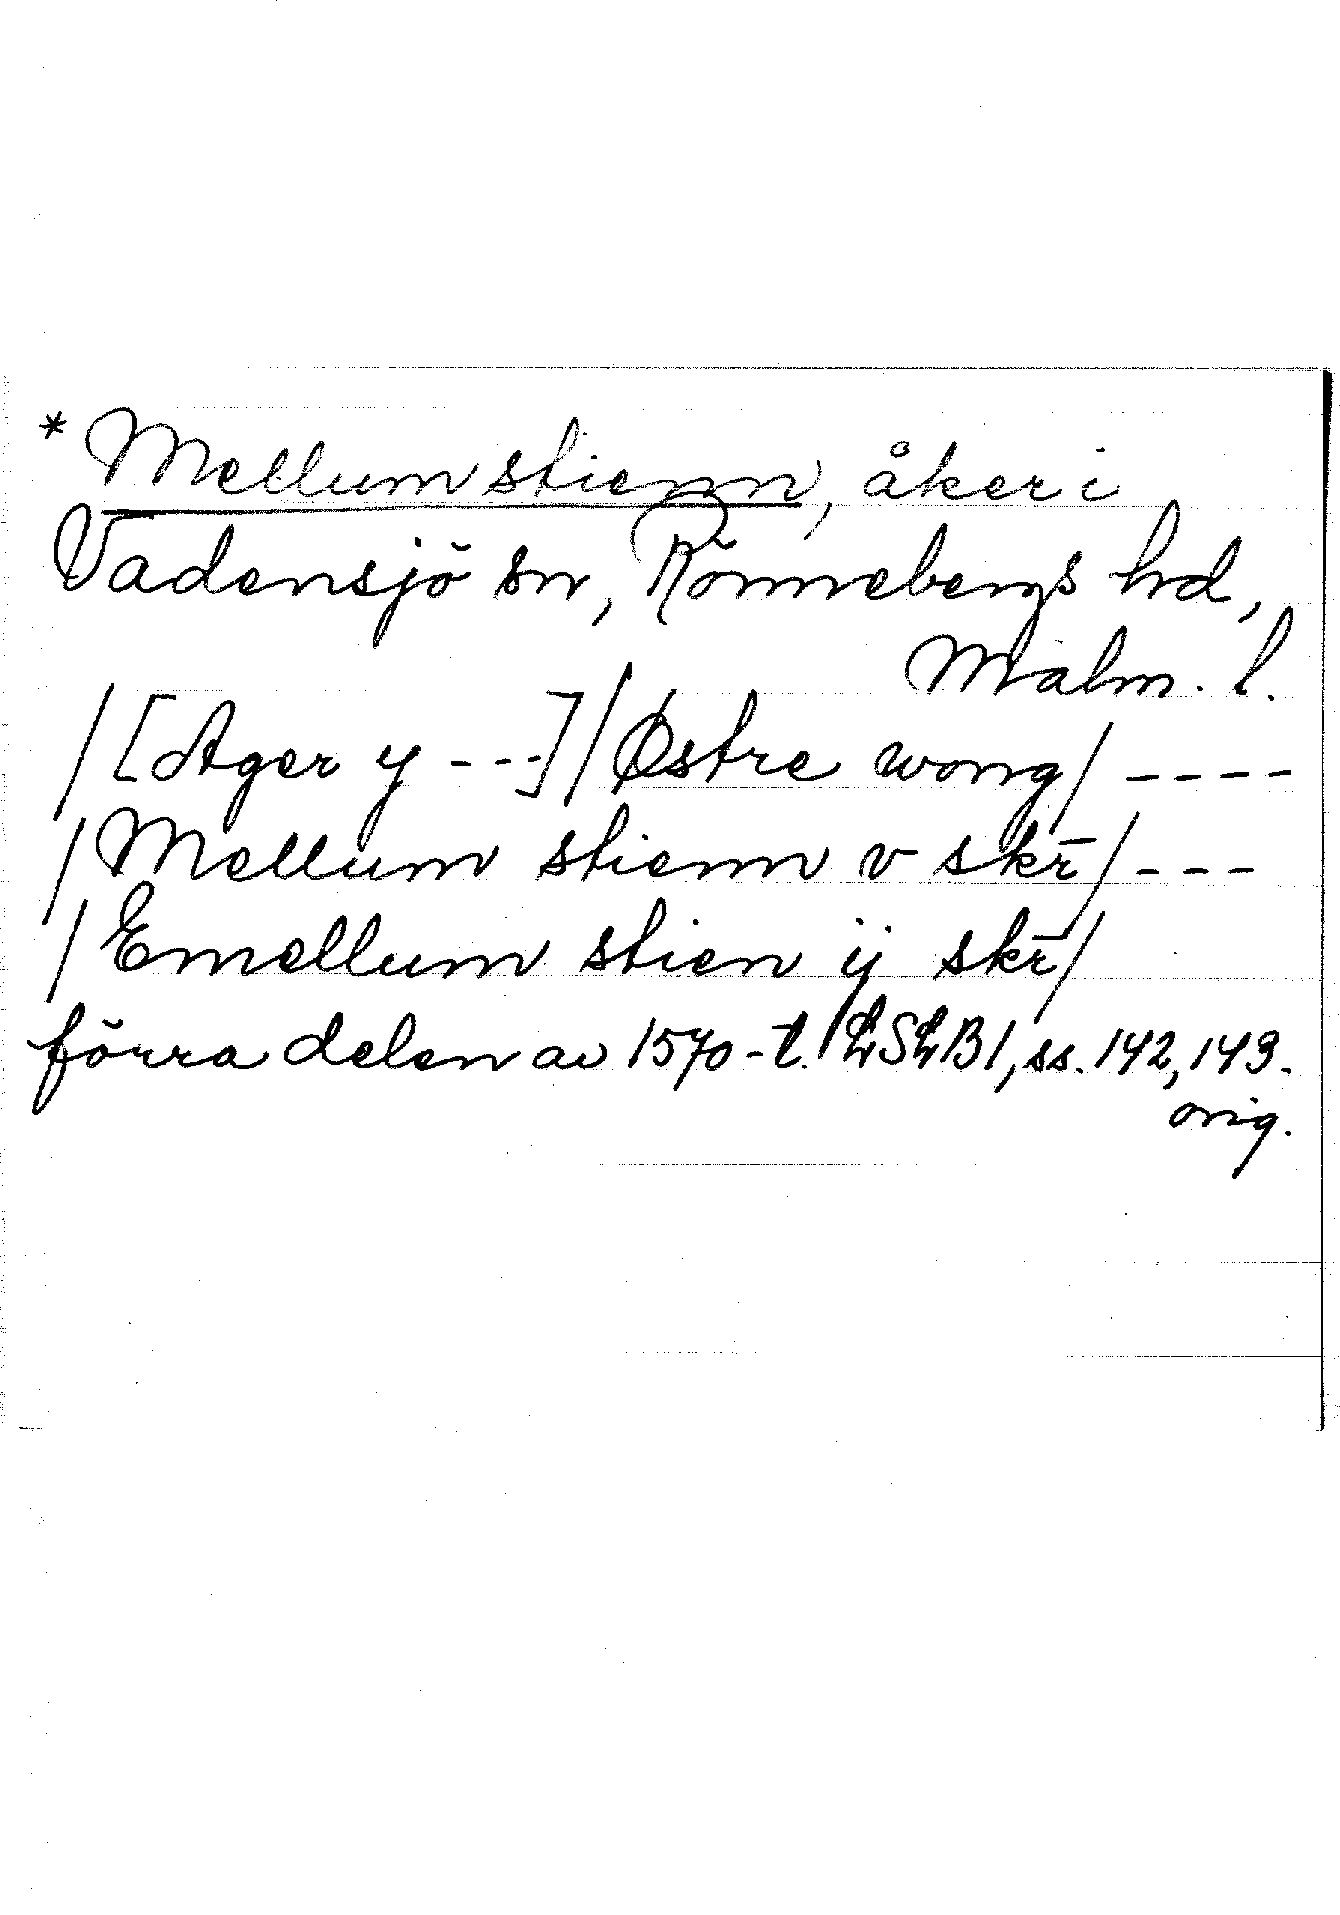 * Mellum stienn, åker i
Vadensjö sn, Rönnebergs hd,
Malm. l.
/[Ager y ---]/Østre wong/ ----
/Mellum stienn v skr̄/ ---
/Emellum stien ij skr̄/
förra delen av 1570-t. LSLB1, ss. 142, 143.
orig.